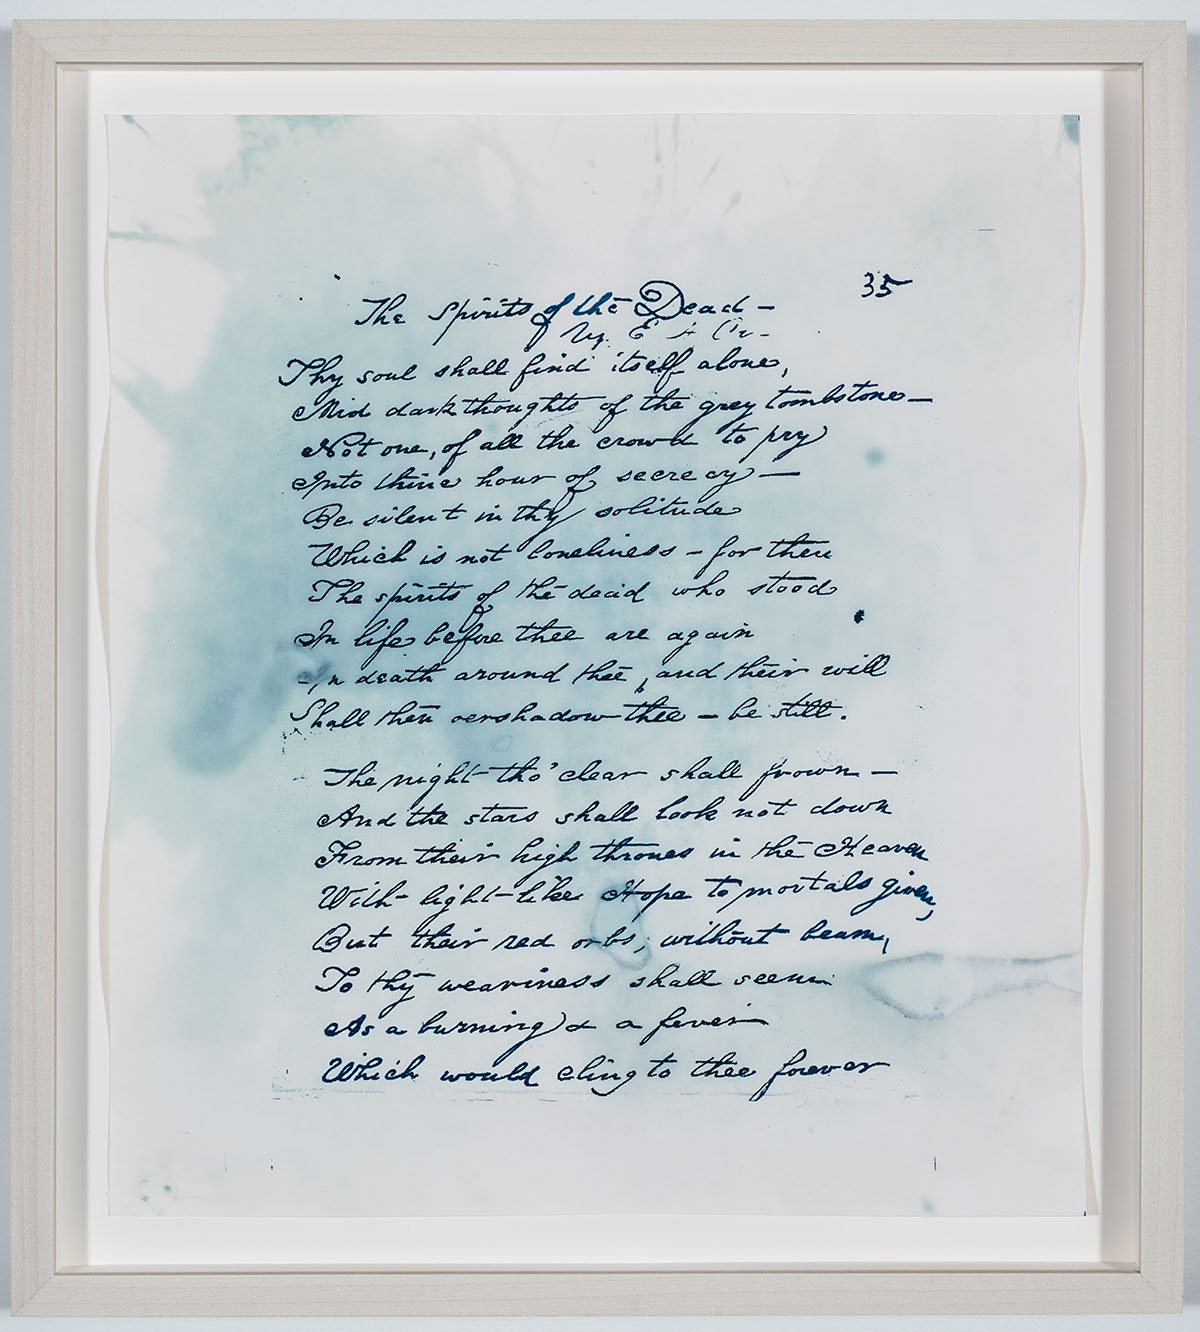 35
The Spirits of the Dead —
by. E A
Thy soul shall find itself alone,
Mid dark thoughts of the grey tombstone —
Not one, of all the crowd to pry
Into thine hour of secrecy —
Be silent in thy solitude
Which is not loneliness — for then
The spirits of the dead who stood
In life before thee are again
In death around thee, and their will
Shall then overshadow thee — be still.
The night tho' clear shall frown —
And the stars shall look not down
From their high thrones in the Heaven
With light-like Hope to mortals given,
But their red orbs, without beam,
To thy weariness shall seem
As a burning & a fever
Which would cling to thee forever